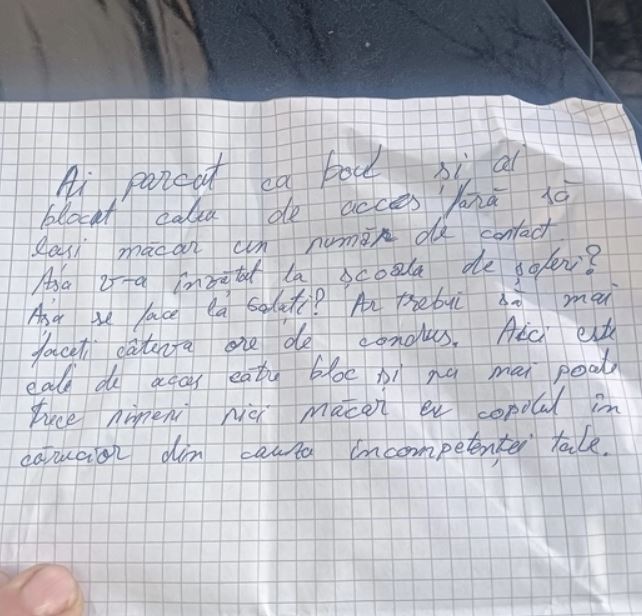 Ai parcat ca boul și ai
blocat calea de acces fără să
lași măcar un număr de contact
Așa v-a învățat la școala de șoferi?
Așa se face la Galați? Ar trebui să mai
faceți câteva ore de condus. Aici este
cale de acces către bloc și nu mai poate
trece nimeni nici măcar cu copilul în
cărucior din cauza incompetenței tale.